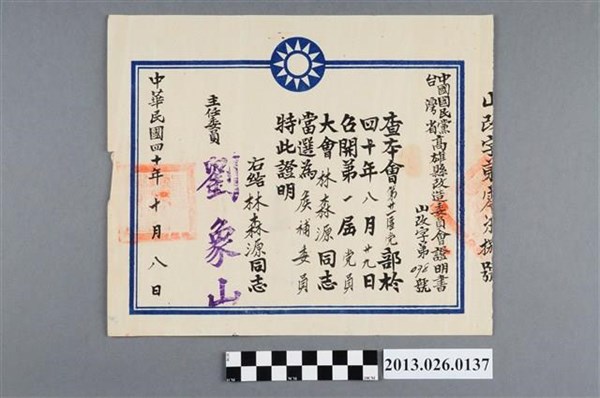 中國國民黨台灣省高雄縣改造委員會證明書
山改字第096號
查本會第廿一區党部於
四十年八月廿九日
召開第一屆党員
大會林森源同志
當選為候補委員
特此證明
右給林森源同志
主任委員 劉象山
中華民國四十年十月八日
2013.026.0137